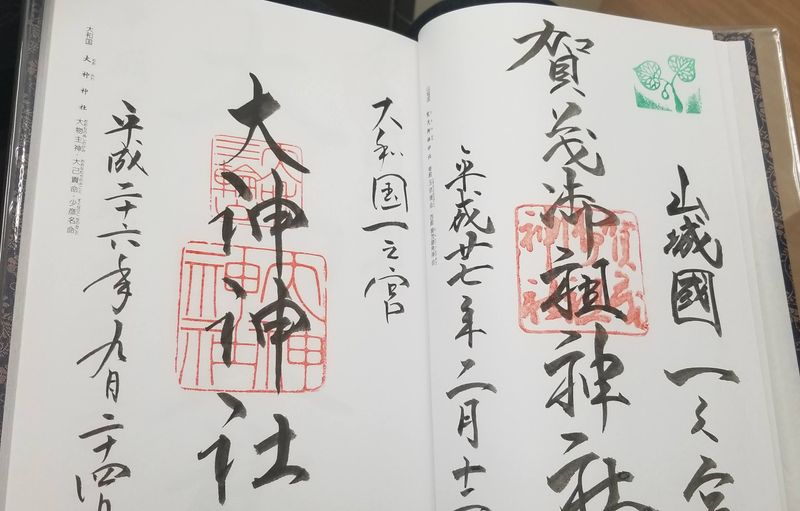 山城國一之宮
賀茂御祖神社
平成廿七年二月十
大和国一之宮
大神神社
大神神社
平成二十六年九月二十四日
大和国 大神神社 大物主神・大己貴命・少彦名命